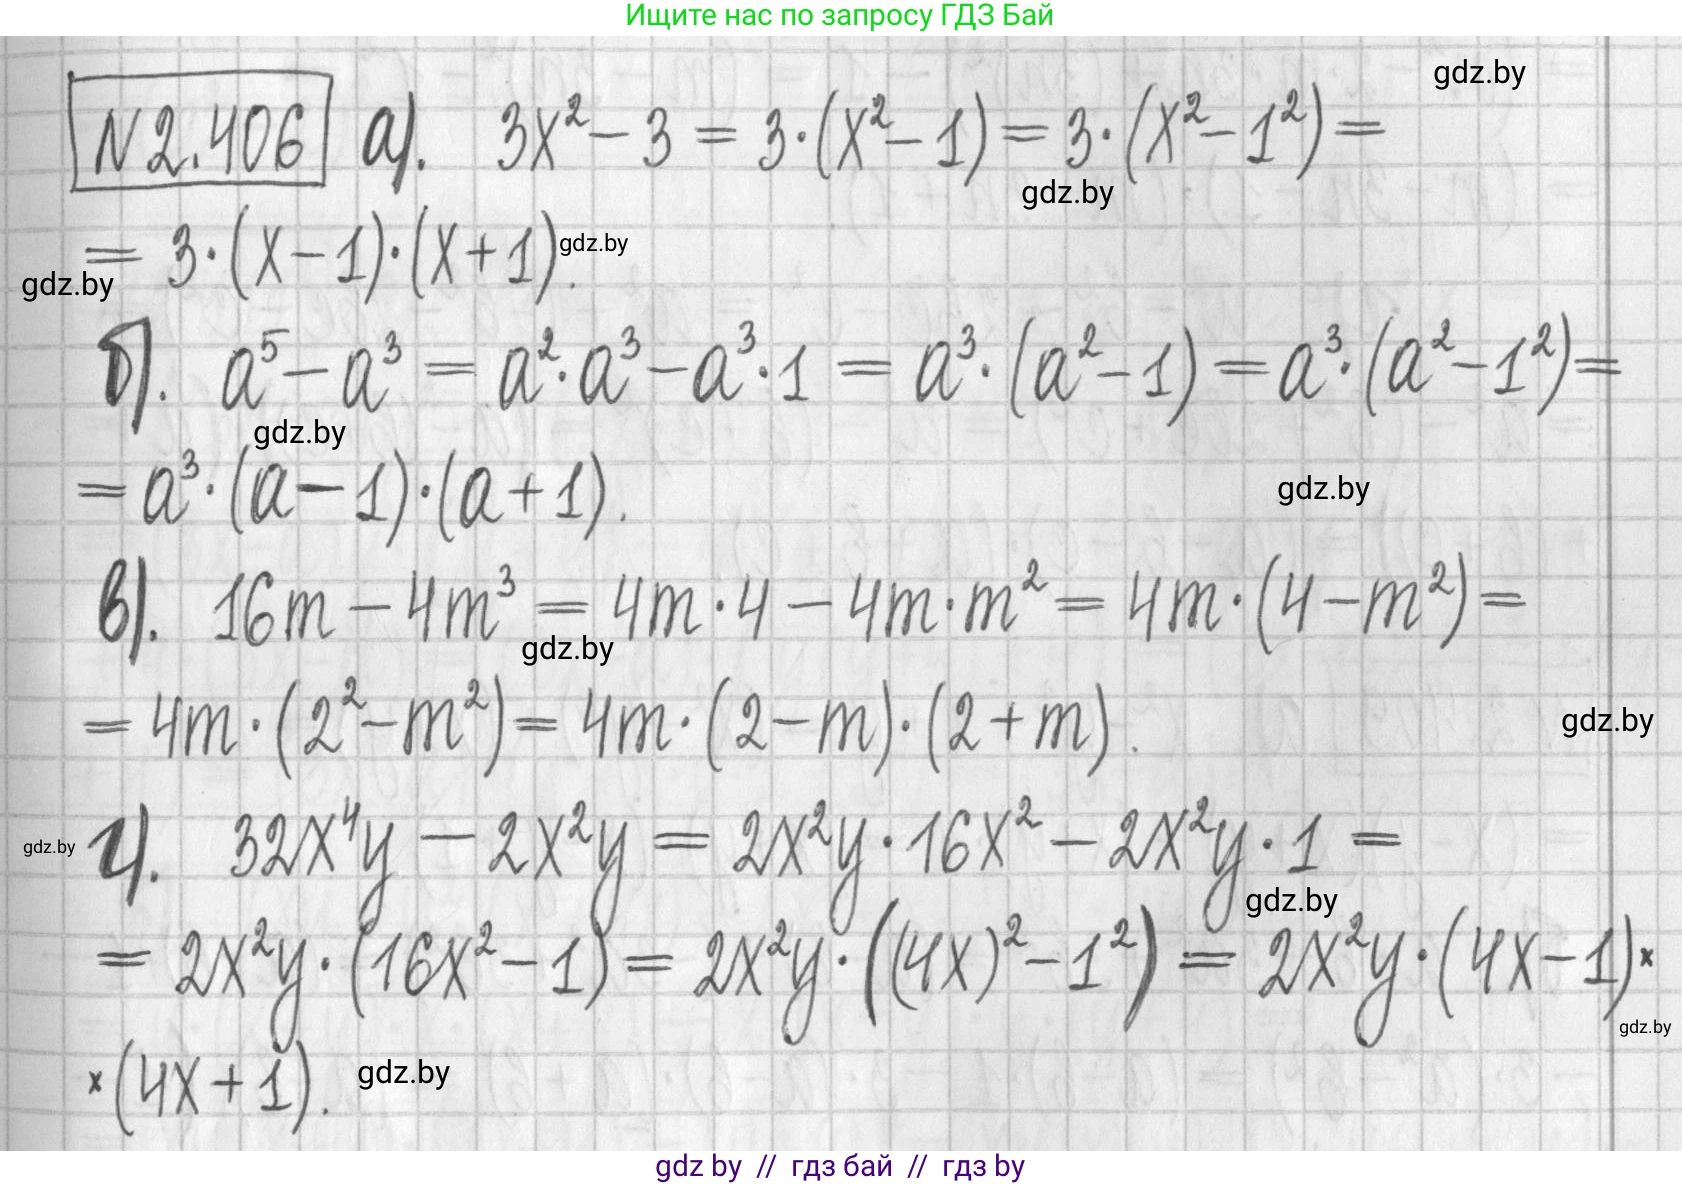 Ищите нас по запросу ГДЗ Бай
gdz.by
N 2.406 а). 3x² − 3 = 3·(x² − 1) = 3·(x² − 1²) =
gdz.by
= 3·(x − 1)·(x + 1).
gdz.by
gdz.by
б). a⁵ − a³ = a²·a³ − a³·1 = a³·(a² − 1) = a³·(a² − 1²) =
gdz.by
= a³·(a − 1)·(a + 1).
gdz.by
в). 16m − 4m³ = 4m·4 − 4m·m² = 4m·(4 − m²) =
gdz.by
= 4m·(2² − m²) = 4m·(2 − m)·(2 + m).
gdz.by
gdz.by
г). 32x⁴y − 2x²y = 2x²y·16x² − 2x²y·1 =
gdz.by
= 2x²y·(16x² − 1) = 2x²y·((4x)² − 1²) = 2x²y·(4x − 1)×
gdz.by
×(4x + 1).
gdz.by
gdz by // гдз бай // гдз by